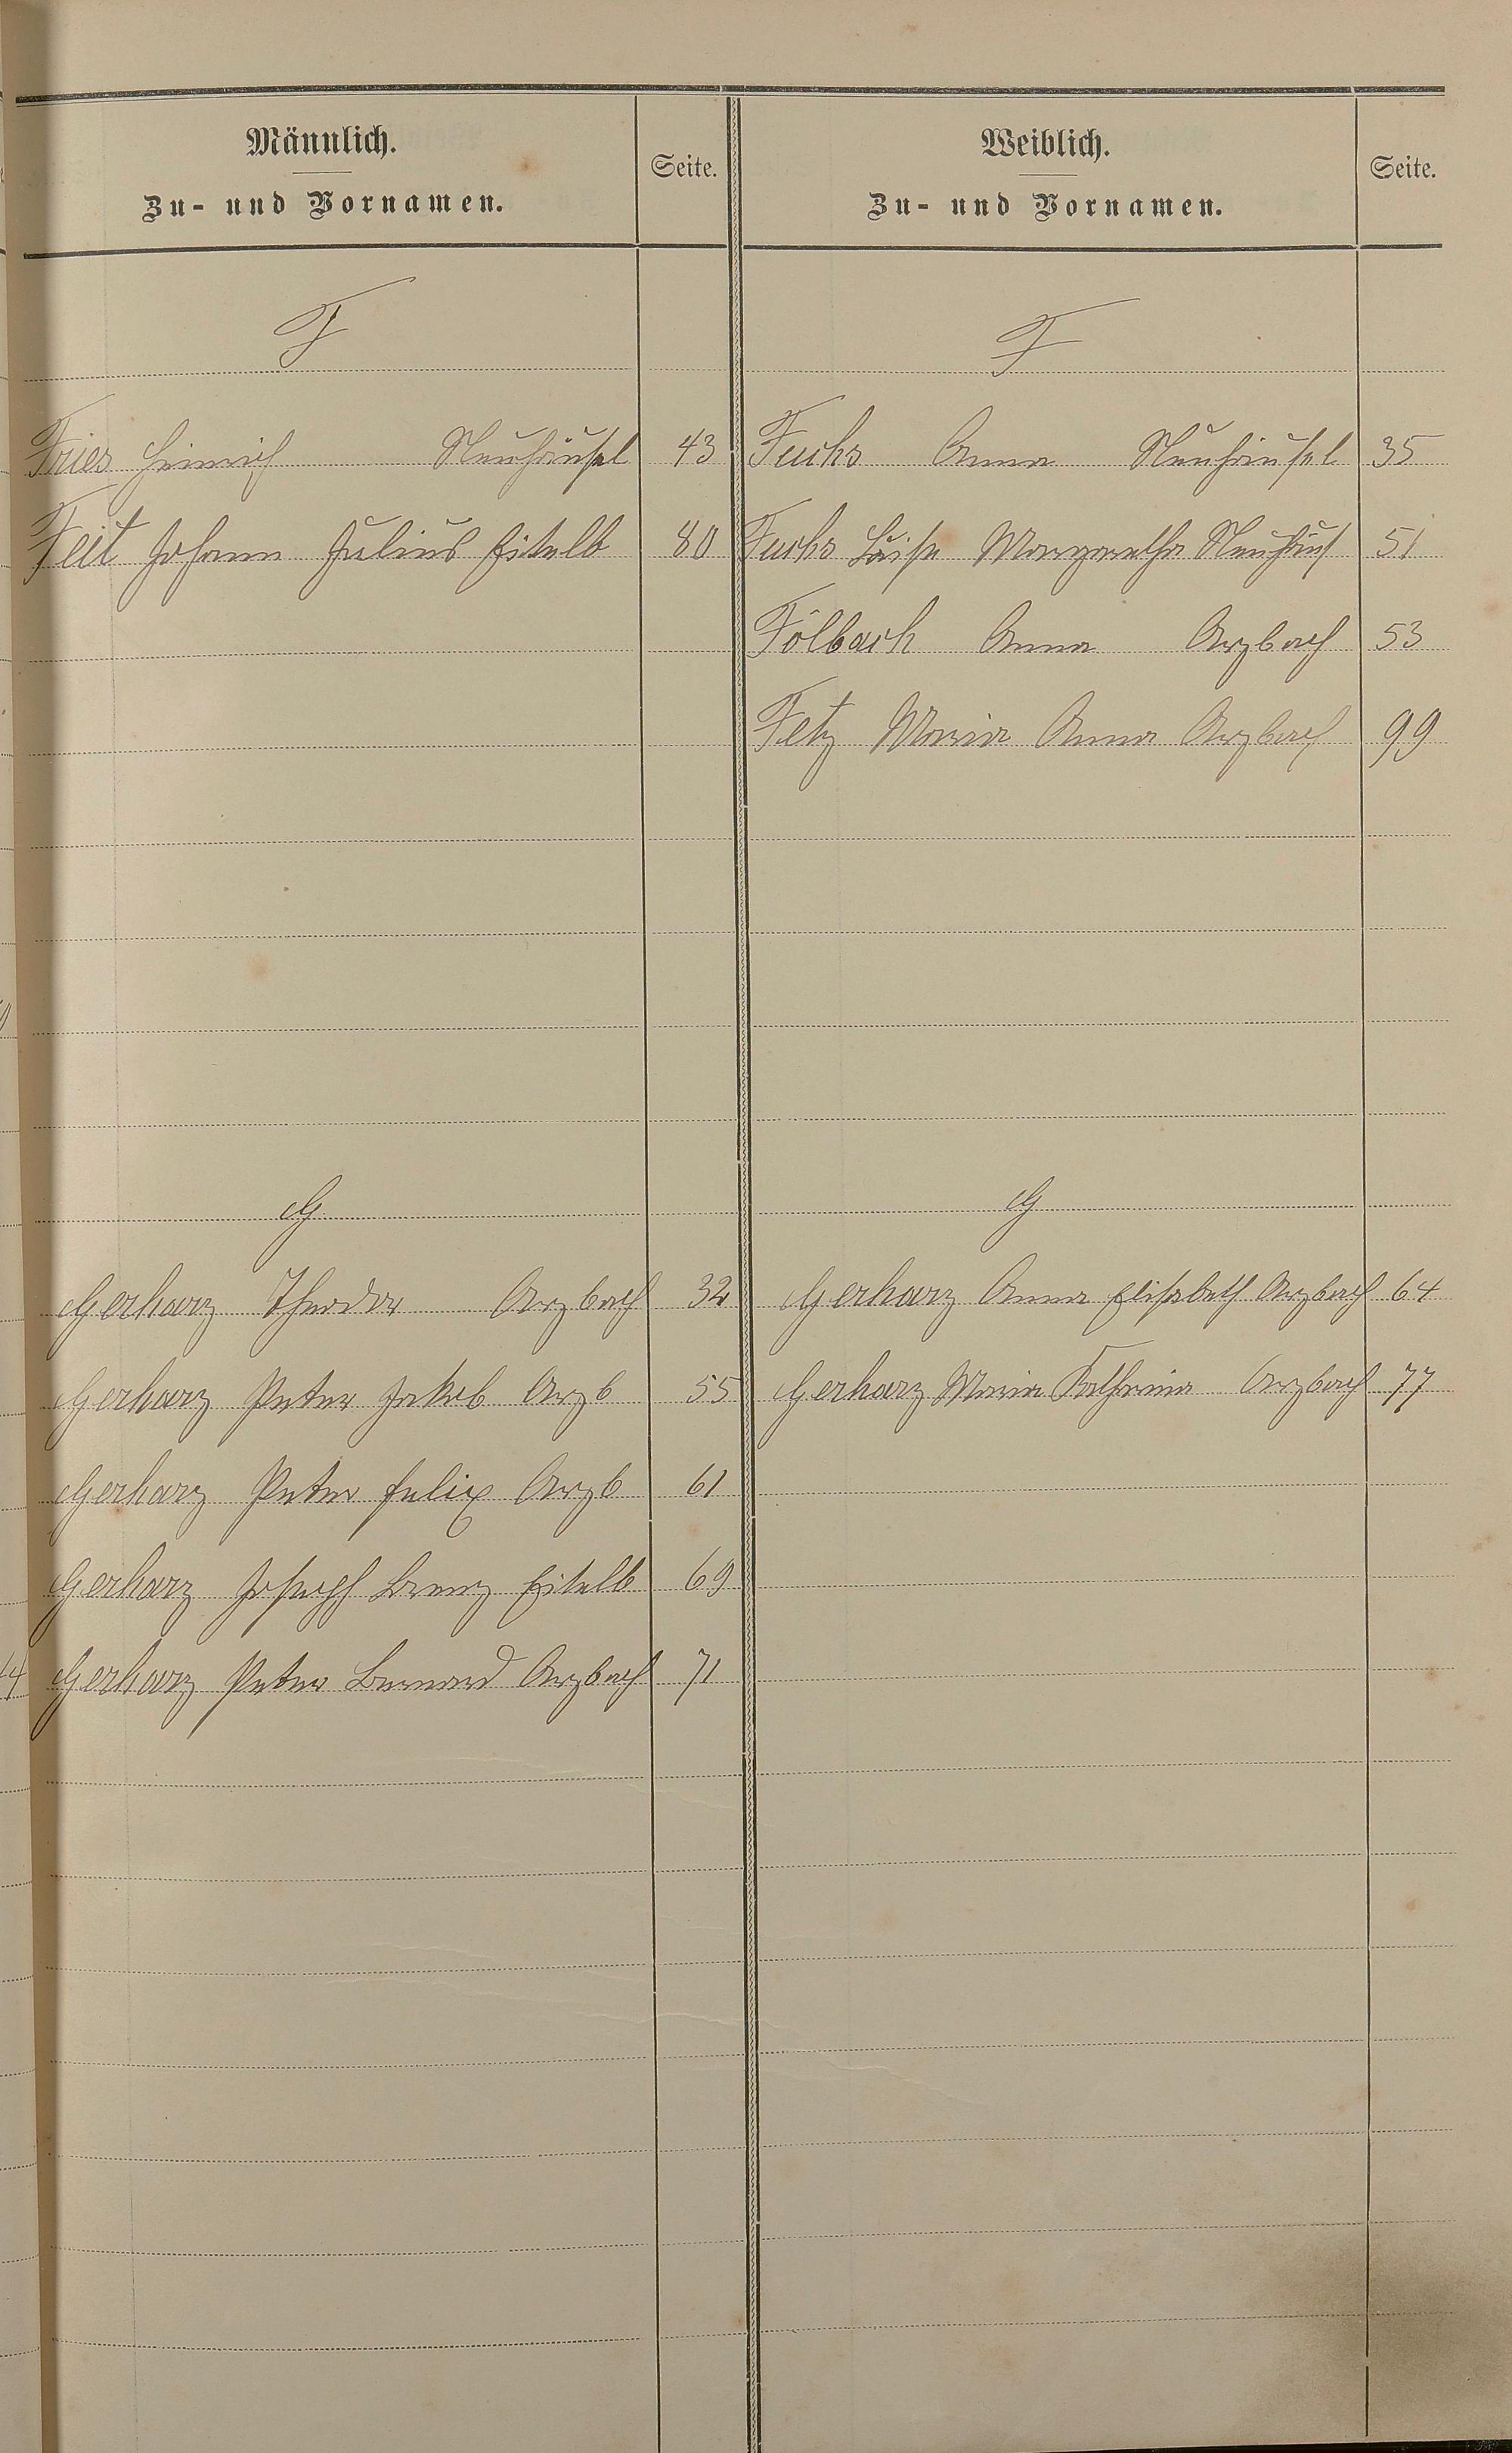 Männlich.
Zu- und Vornamen.
Seite.
F
Fries Heinrich Neuhäusel 43
Feit Johann Julius Eitelb 80
G
Gerharz Theodor Arzbach 32
Gerharz Peter Jakob Arzb 55
Gerharz Peter Felix Arzb 61
Gerharz Joseph Lorenz Eitelb 69
Gerharz Peter Bernard Arzbach 71
Weiblich.
Zu- und Vornamen.
Seite.
F
Fuchs Anna Neuhäusel 35
Fuchs Luise Margaretha Neuhäus 51
Fölbach Anna Arzbach 53
Fetz Maria Anna Arzbach 99
G
Gerharz Anna Elisabeth Arzbach 64
Gerharz Maria Katharina Arzbach 77